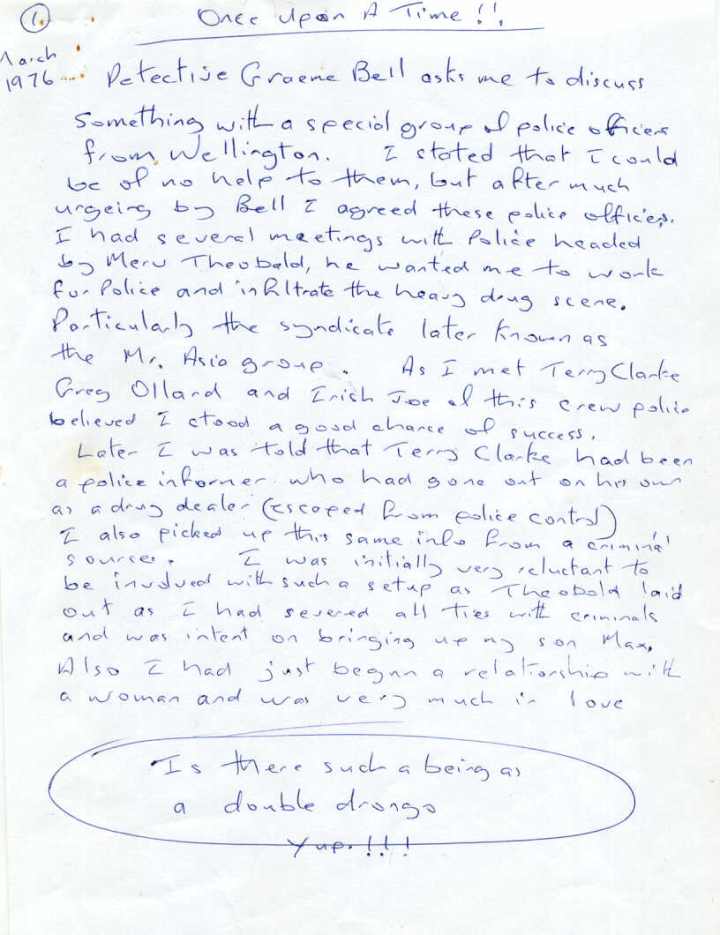 1. Once Upon A Time !!
March
1976 Detective Graeme Bell asks me to discuss
something with a special group of police officers
from Wellington. I stated that I could
be of no help to them, but after much
urgeing by Bell I agreed these police officers.
I had several meetings with Police headed
by Merv Theobald, he wanted me to work
for Police and infiltrate the heavy drug scene.
Particularly the syndicate later known as
the Mr. Asia group. As I met Terry Clarke
Greg Ollard and Erich Joe of this crew police
believed I stood a good chance of success.
Later I was told that Terry Clarke had been
a police informer who had gone out on his own
as a drug dealer (escaped from police control)
I also picked up this same info from a criminal
source. I was initially very reluctant to
be involved with such a setup as Theobald laid
out as I had severed all ties with criminals
and was intent on bringing up my son Max,
Also I had just begun a relationship with
a woman and was very much in love
Is there such a being as
a double drongo
Yup. !!!